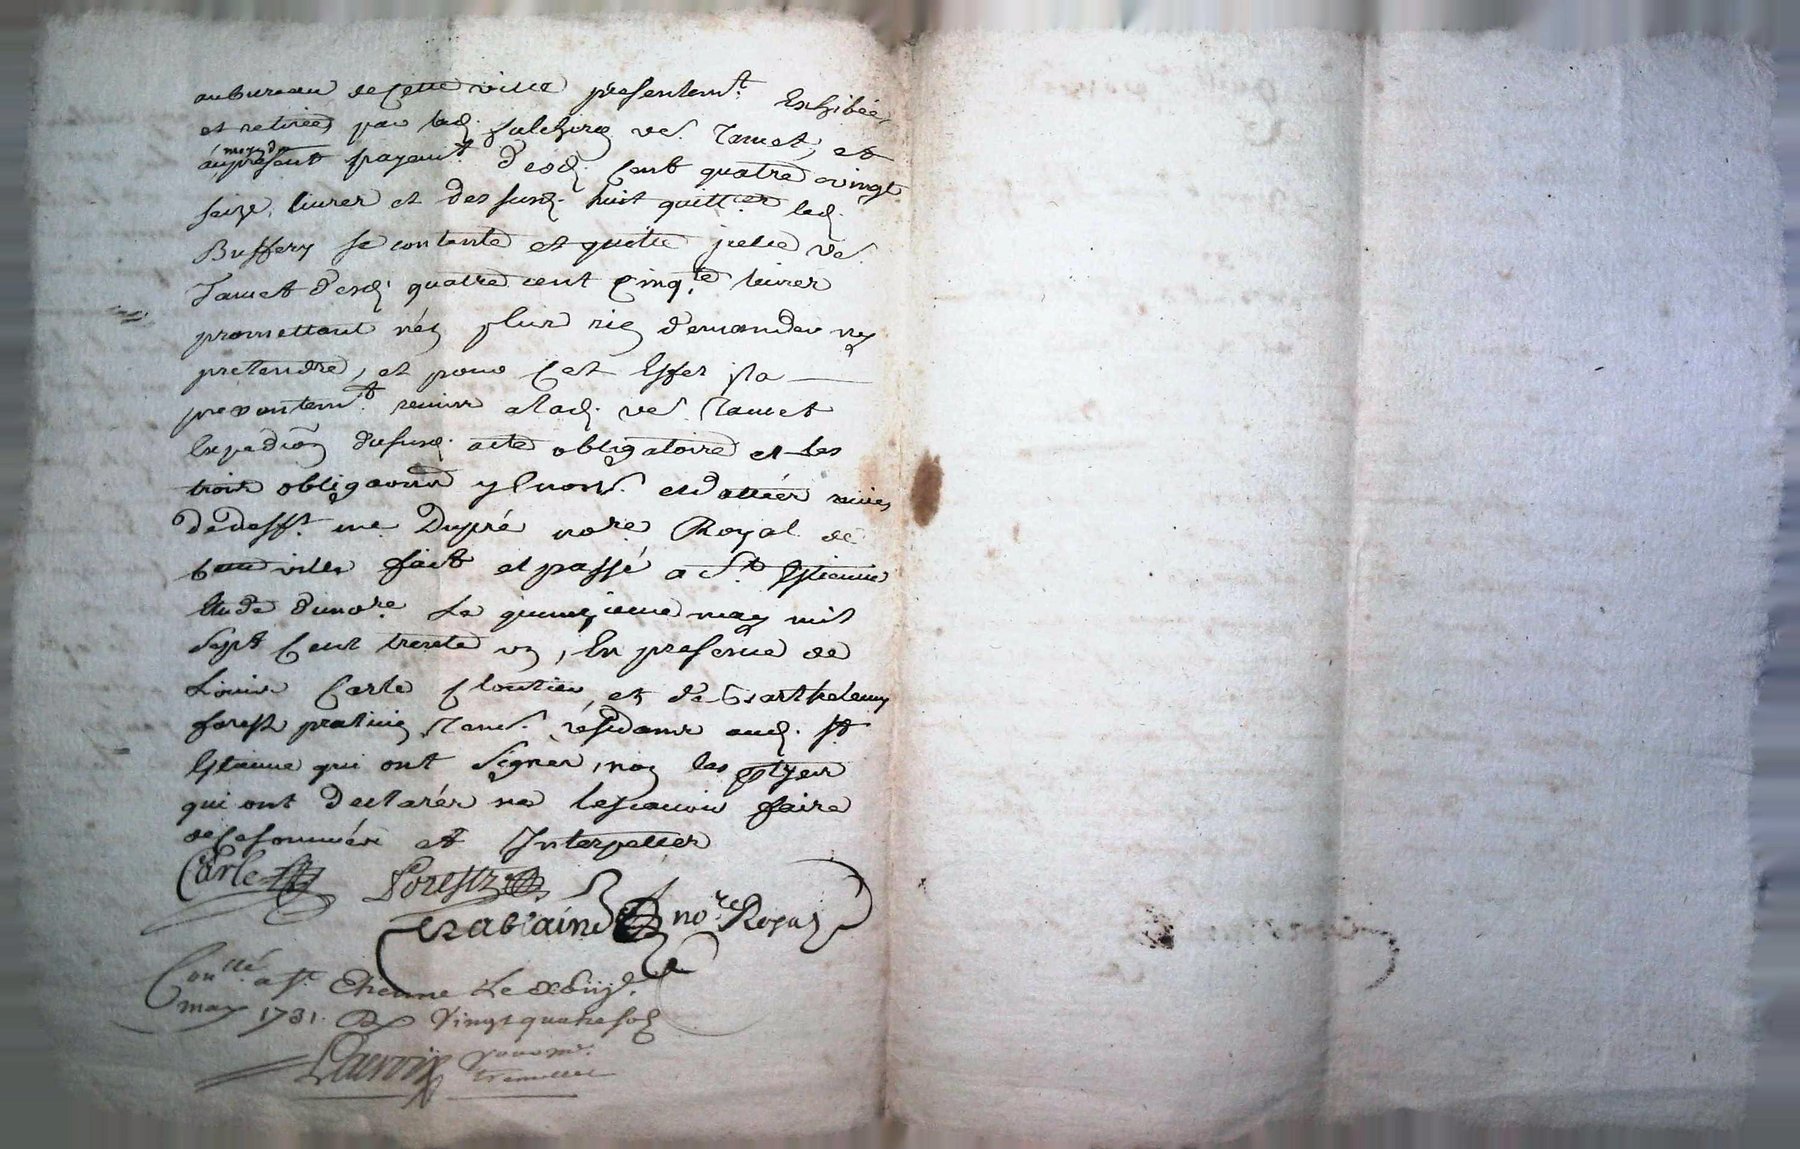 au bureau de Cette ville presentemt. Exhibée,
et retirées par lad. fulchirg ve. Jamet, et
moyend.
au present payemt. desd. Cent quatre vingt
seize, livres et des susd. huit quitt.es led.
Buffery se contente et quitte jcelle ve.
Jamet desd. quatre cent Cinq.te livres
promettant n'en plus rien demander ny
pretendre, et pour Cet Effet jl a
presentemt. remis a lad. ve. Jamet
Expediõn dususd. acte obligatoire et les
trois obligaõns y Enon.
de defft. me Dupré nore. Royal de
Cette ville, fait et passé a St. Estienne
Etude du nore. Le quinzieme may mil
Sept Cent trente un, En presence de
Louis Carle Cloutier et de Barthelemy
forest praticien residants aud. St.
Estienne qui ont signés, non les ptyes
qui ont declarés ne le scavoir faire
de Ce sommées et Interpellés
Carle Forest
Brablaine nore. Royal
Conllé. a St. Etienne Le
may 1731. R vingt quatre sols
Lacroix